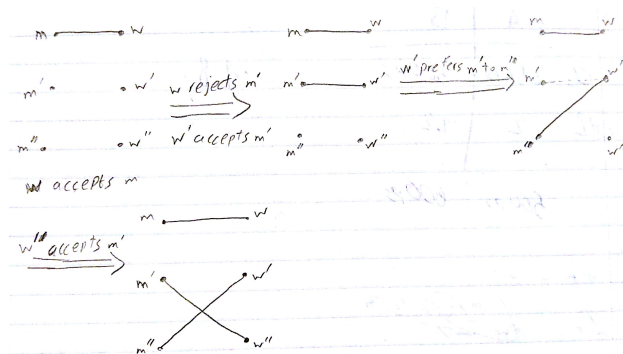 m w m w m w
m' w' w rejects m' m' w' w' prefers m' to m'' m' w'
m'' w'' w' accepts m' m'' w'' m'' w'
w accepts m
m w
w'' accepts m'
m' w'
m'' w''